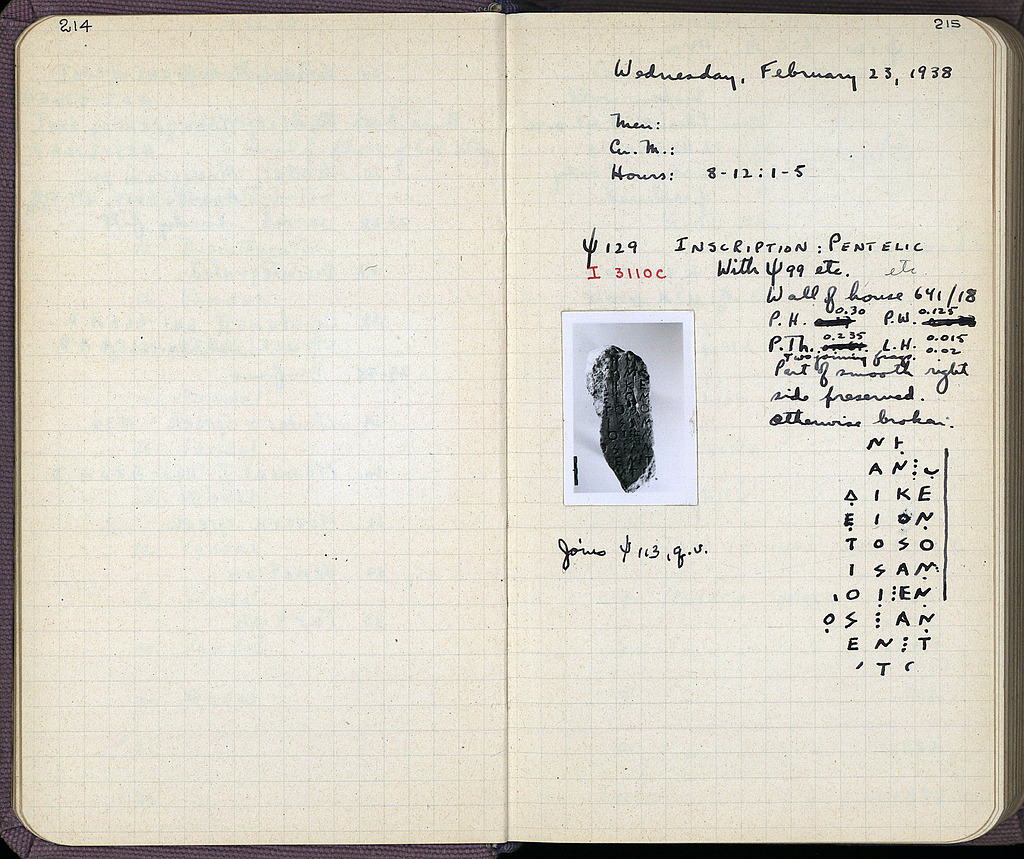 214
215
Wednesday, February 23, 1938
Men:
Cu. M.:
Hours: 8-12 : 1-5
Ψ 129 INSCRIPTION : PENTELIC
I 3110c With Ψ 99 etc. etc.
Wall of house 641/18
P.H. 0.30 P.W. 0.125
P.Th. 0.235 L.H. 0.015
0.02
Two joining frags.
Part of smooth right
side preserved.
Otherwise broken.
Joins Ψ 113, q.v.
Ν Ͱ
Α Ν ⋮
Δ Ι Κ Ε
Ε Ι Ο Ν
Τ Ο Σ Ο
Ι Σ Α Ν
Ο Ι ⋮ Ε Ν
Ο Σ ⋮ Α Ν
Ε Ν ⋮ Τ
Τ